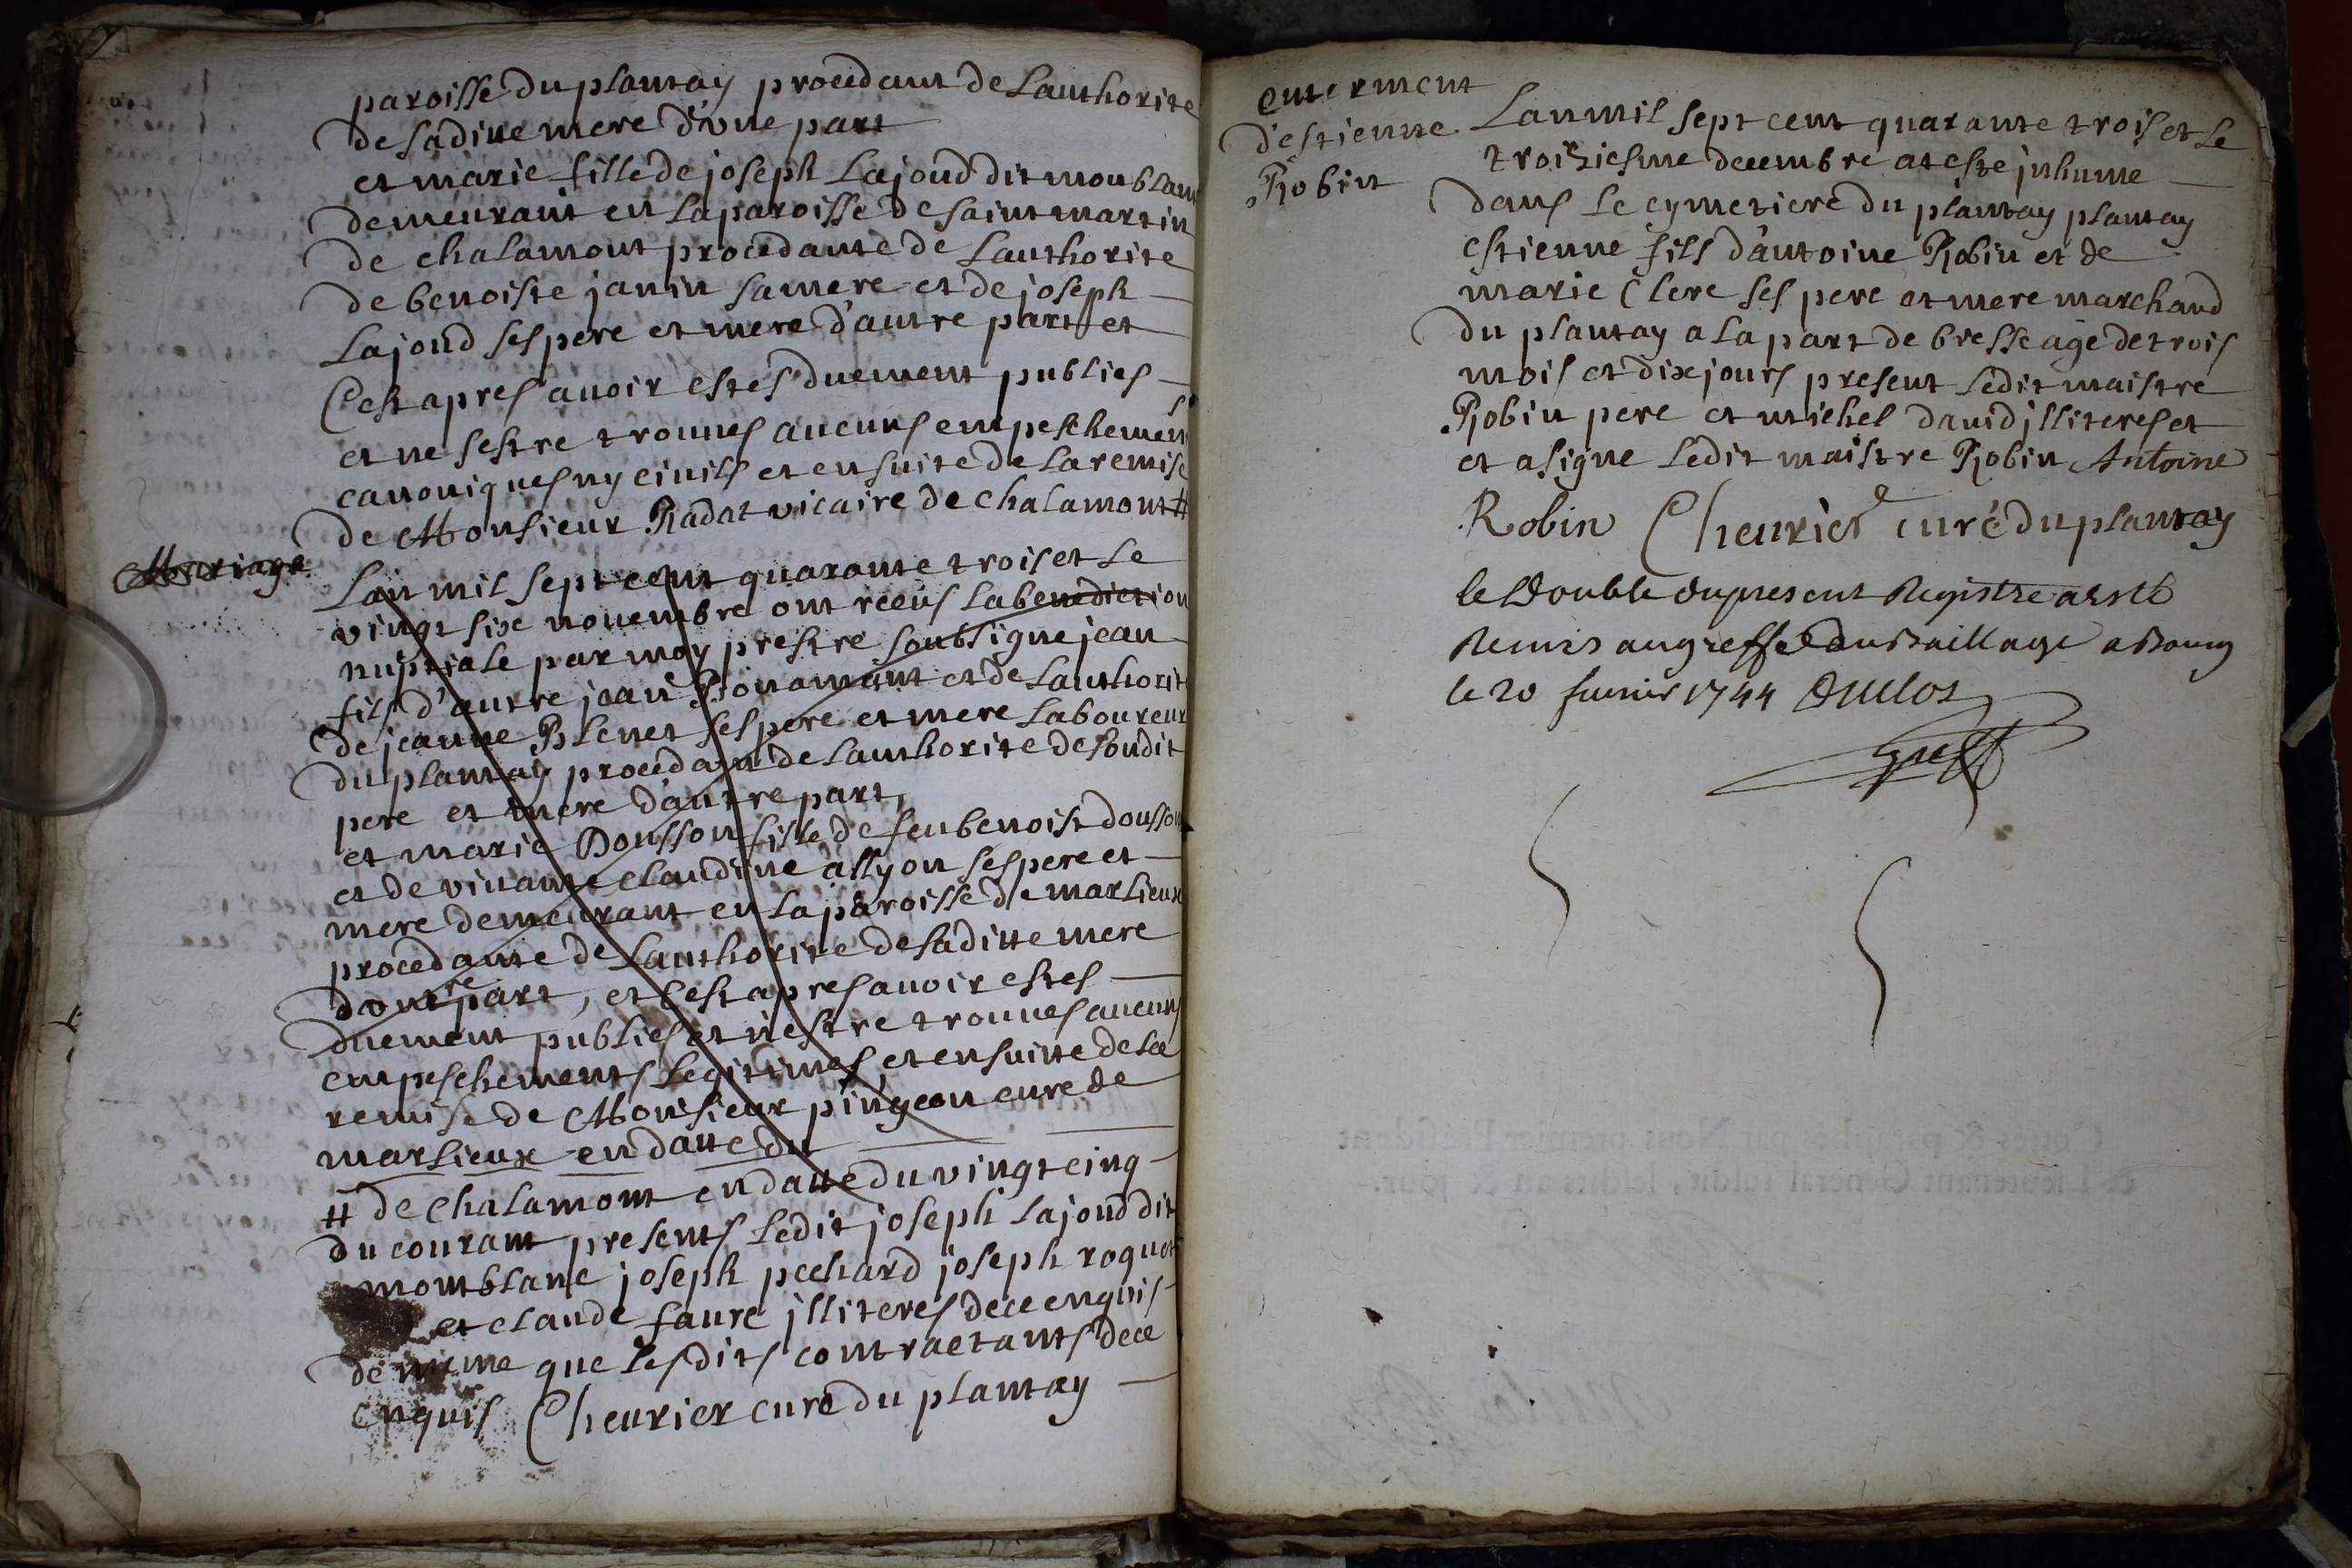 paroisse du plantay procedant de Lauthorite
de saditte mere d'vne part
et marie fille de joseph Lajoud dit monblanc
demeurant en la paroisse de saint martin
de chalamont procedante de Lauthorite
de benoiste janin sa mere et de joseph
Lajoud ses pere et mere d'autre part et
C'est apres auoir estés duement publies
et ne sestre trouues aucuns empeschements
canoniques ny ciuils et ensuite de la remise
de Monsieur Radat vicaire de chalamont #
Mariage
Lan mil sept cent quarante trois et Le
vingt six nouembre ont receus la benediction
nuptiale par moy prestre soubsigne jean
fils d'autre jean Bonamant et de Lauthorite
de jeanne Blenet ses pere et mere Laboureur
du plantay procedant de Lauthorite de soudit
pere et mere d'autre part,
et marie Dousson fille de feu benoist dousson
et de viuante claudine allyon ses pere et
mere demeurant en la paroisse de marlieux
procedante de Lauthorite de saditte mere
d'vne part, et c'est apres auoir estes
duement publies et n'estre trouues aucuns
empeschements legitimes, et ensuitte de La
remise de Monsieur pingeon cure de
marlieux en datte du
# de chalamont en datte du vingt cinq
du courant presents Ledit joseph Lajoud dit
momblanc joseph pechard joseph roquet
et claude faure jlliteres de ce enquis
de mime que Lesdits contractants de ce
enquis Cheurier cure du plantay
enterment
d'estienne
Robin
Lan mil sept cent quarante trois et Le
troiziesme decembre at este jnhume
dans Le cymetiere du plantay plantay
estienne fils d'antoine Robin et de
marie Clere ses pere et mere marchand
du plantay a la part de bresse age de trois
mois et dix jours present Ledit maistre
Robin pere et michel dauid jlliteres et
et a signe Ledit maistre Robin Antoine
Robin Cheurier curé du plantay
le Double du present Registre a esté
Remis au greffe du Baillage a Bourg
le 20 feurier 1744 Duclos
greff